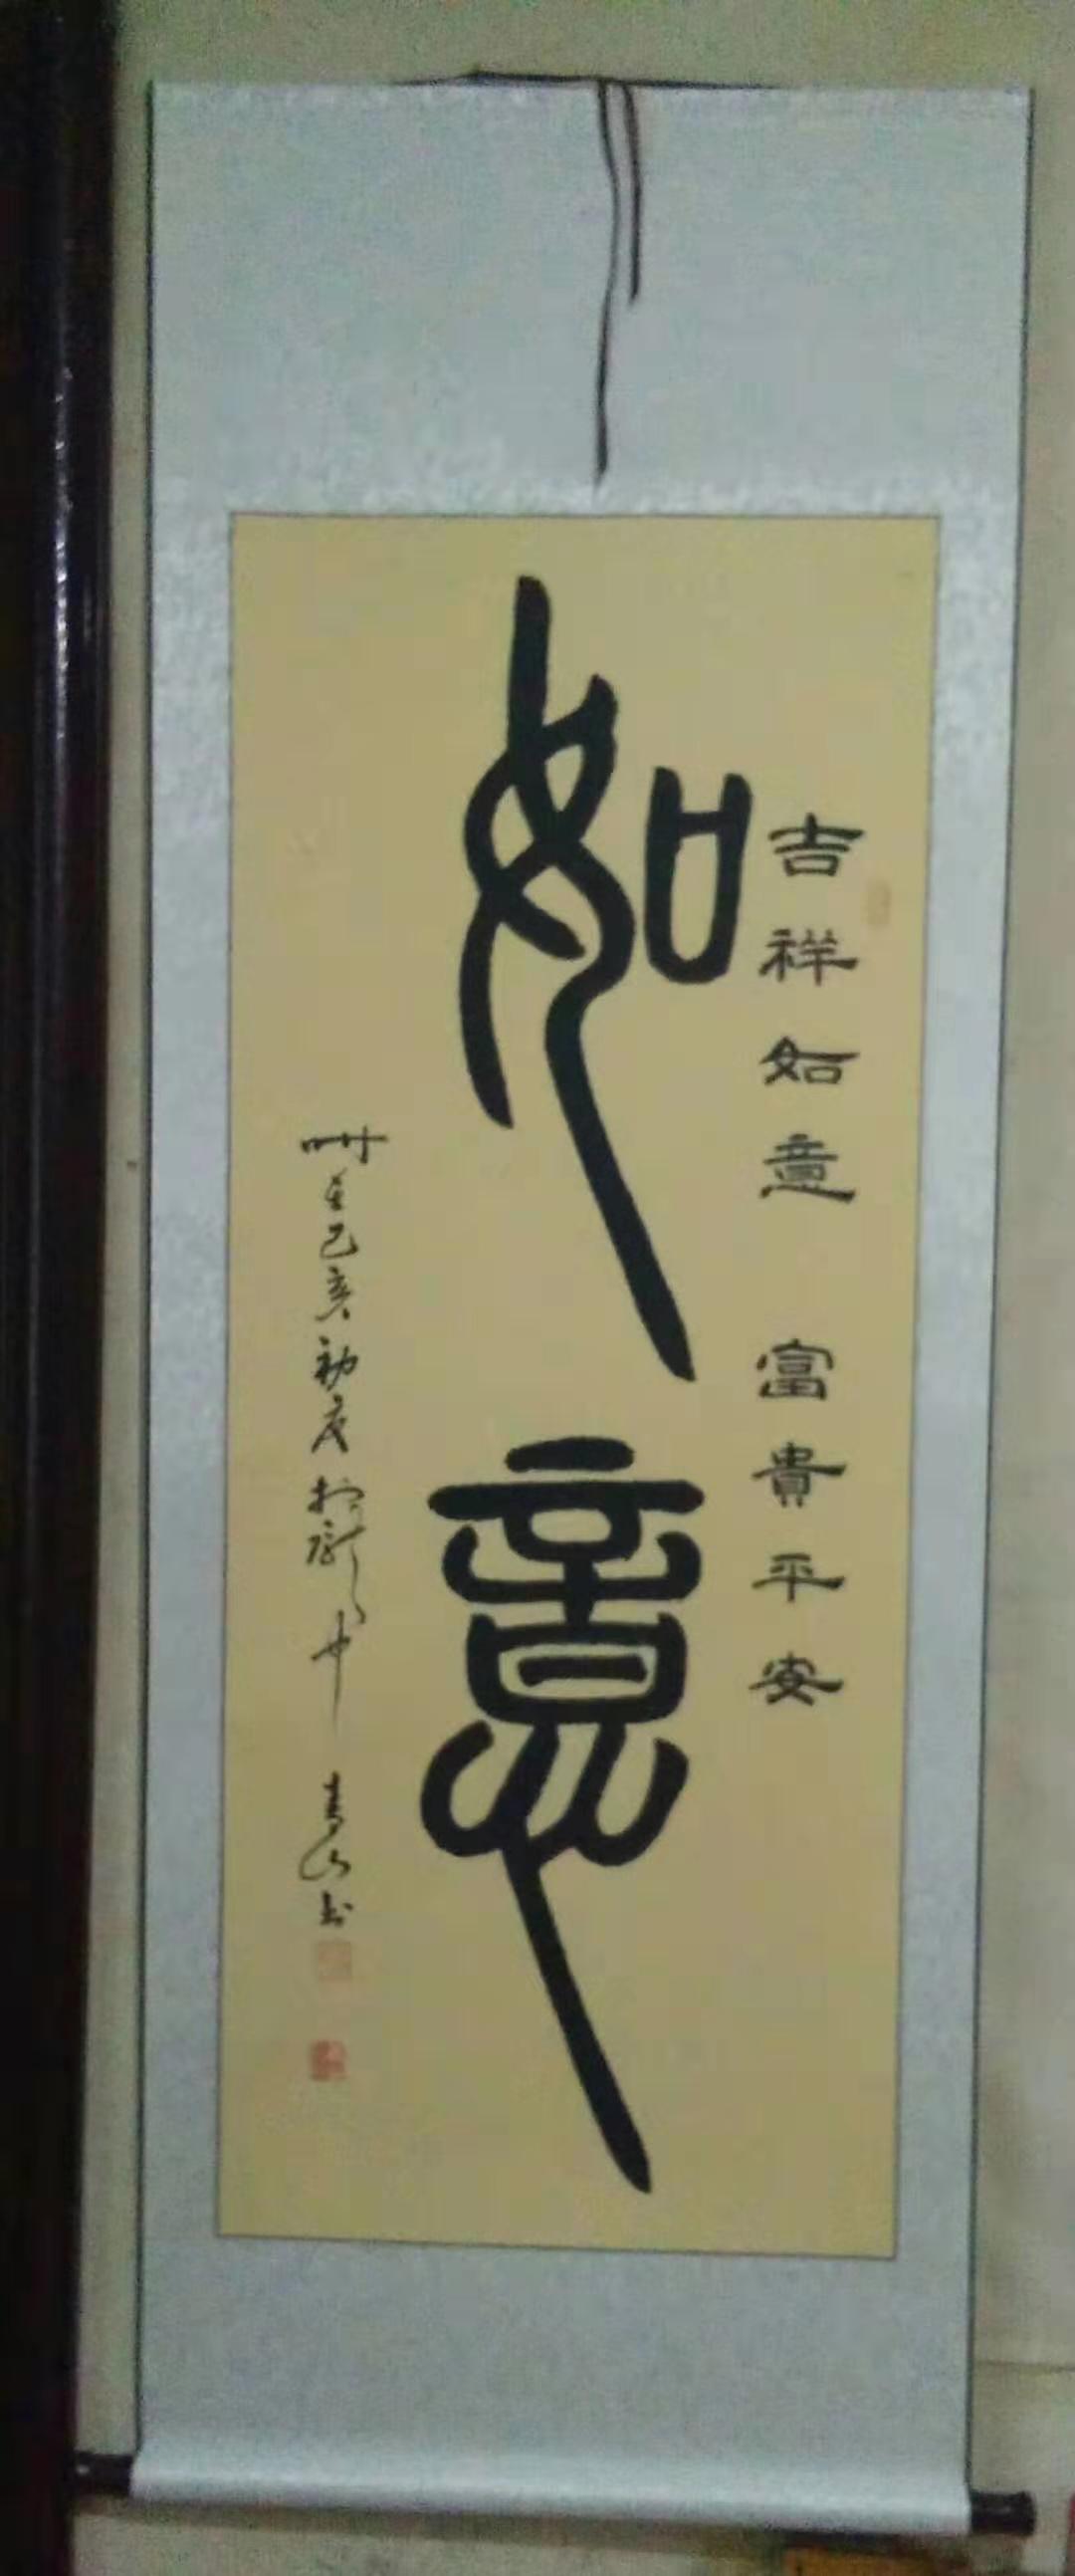 吉祥如意 富貴平安
如意
己亥初夏於龍中 青山书